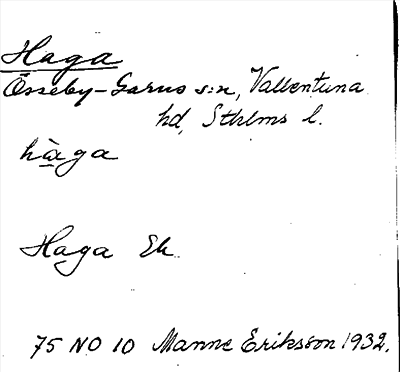 Haga
Össeby-Garns s:n, Vallentuna
hd, Sthlms l.
hàga
Haga Ek.
75 NO 10 Manne Eriksson 1932.